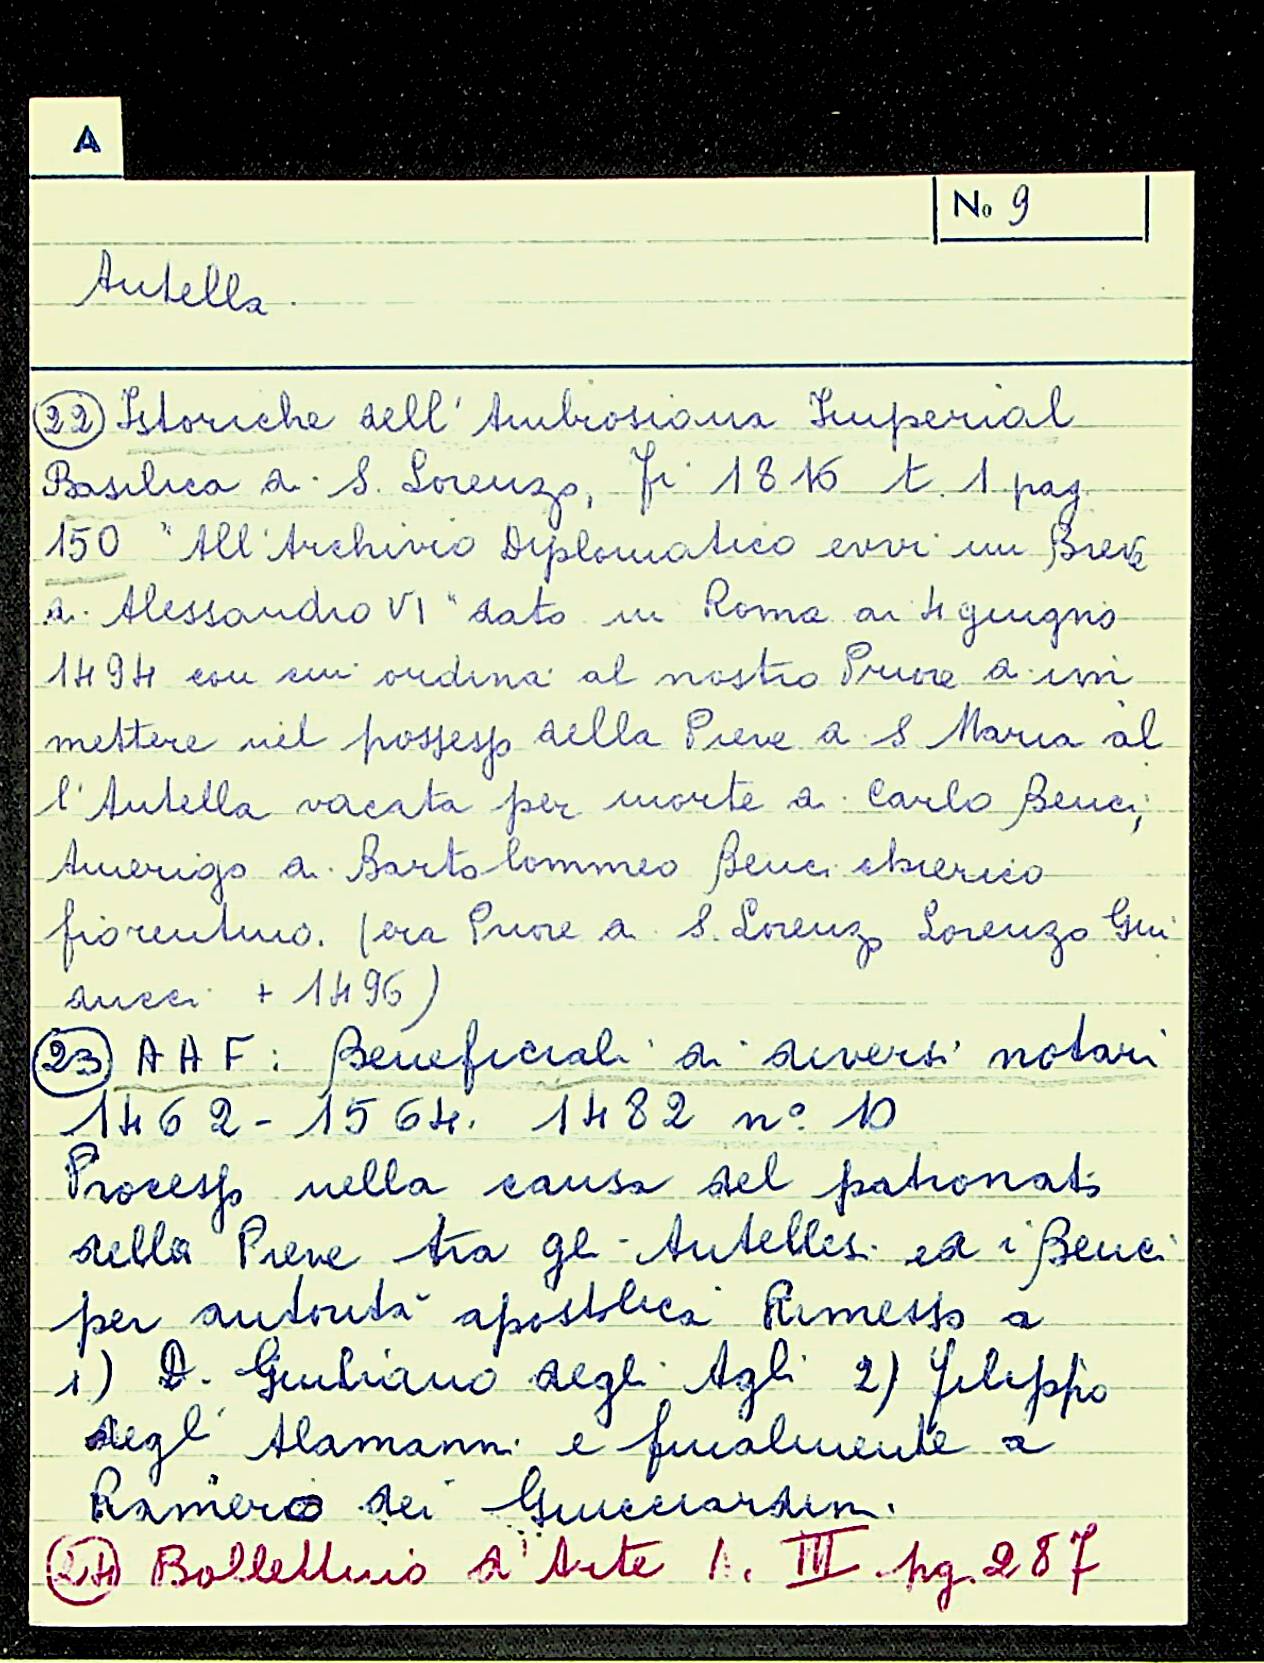 A
No 9
Antella.
22 Istoriche dell'Ambrosiana Imperial
Basilica di S. Lorenzo, Fi 1816 t. 1 pag.
150 "All'Archivio Diplomatico evvi un Breve
di Alessandro VI" dato in Roma ai 4 giugno
1494 con cui ordina al nostro Priore di im
mettere nel possesso della Pieve di S Maria al
l'Antella vacata per morte di Carlo Benci,
Amerigo di Bartolommeo Benci chierico
fiorentino. (era Priore di S. Lorenzo Lorenzo Gui
ducci + 1496)
23 AAF: Beneficiali di diversi notari
1462-1564. 1482 n° 10
Processo nella causa del patronato
della Pieve tra gli Antellesi ed i Benci
per autorità apostolica Rimesso a
1) D. Giuliano degli Agli 2) Filippo
degl' Alamanni e finalmente a
Raniero dei Guicciardini.
24 Bollettino d'Arte A. III pg. 287